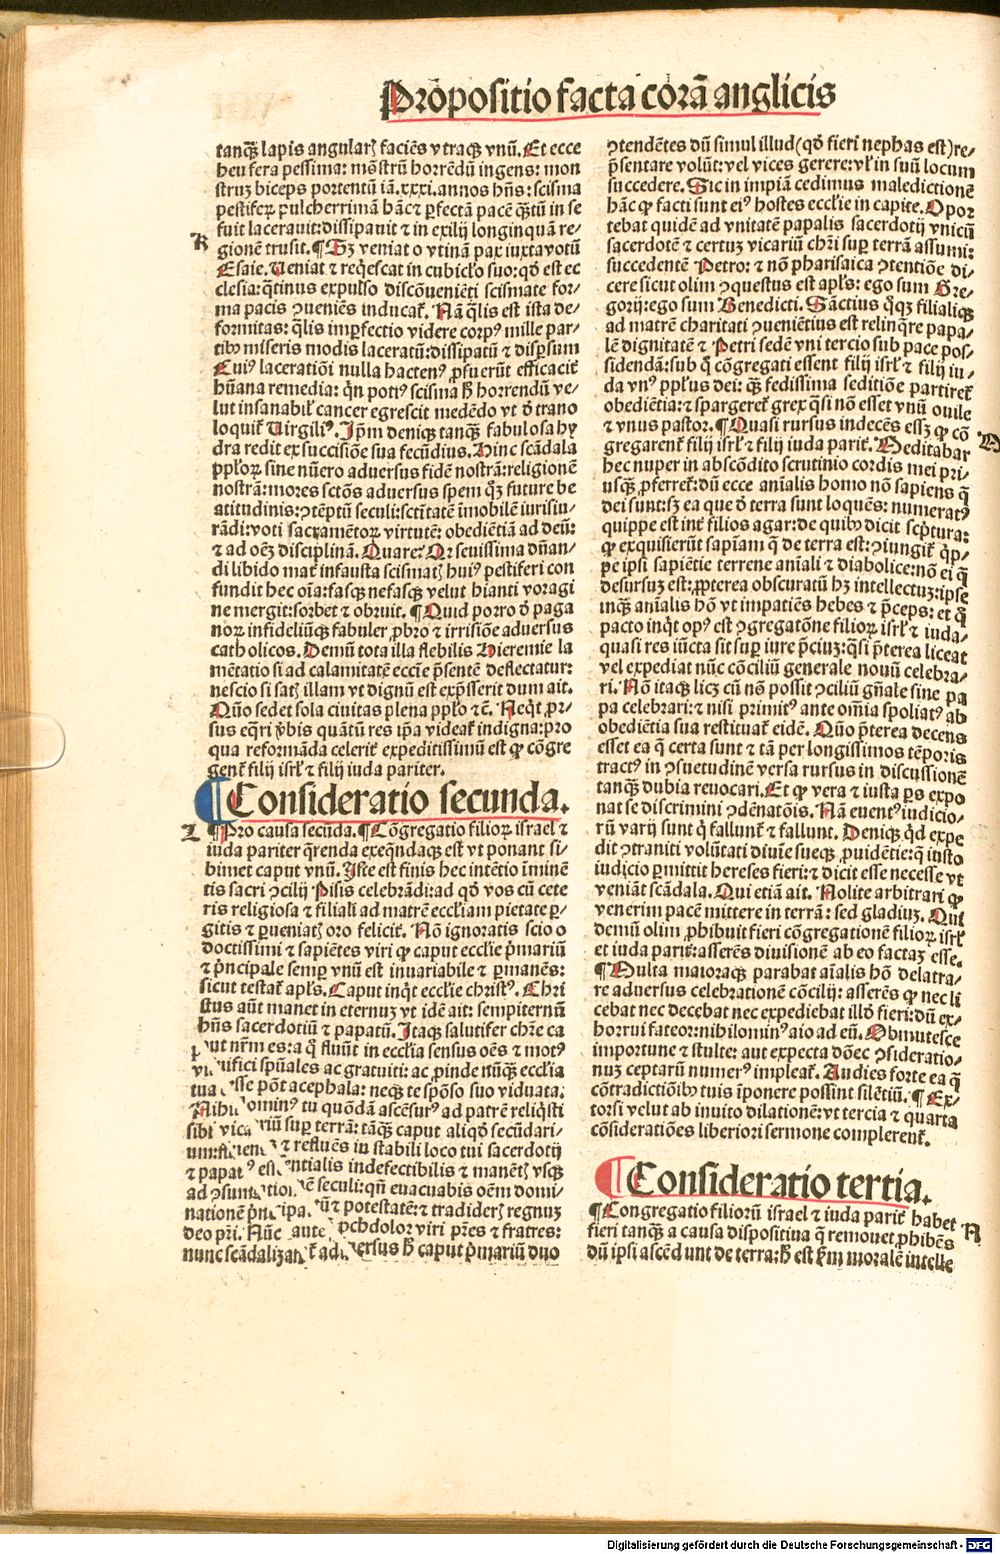 Propositio facta corā anglicis
tanq̄ꝫ lapis angularꝭ faciēs vtraqꝫ vnū. Et ecce
heu fera pessima: mōstrū horrēdū ingens: mon
struꝫ biceps portentū iā .xxxi. annos hn̄s: scisma
pestiferꝫ pulcherrimā hāc ⁊ ꝑfectā pacē q̄ꝫtū in se
fuit lacerauit: dissipauit ⁊ in exilij longinquā re⸗
K
gionē trusit. ¶ Sꝫ veniat o vtinā pax iuxta votū
Esaie. Ueniat ⁊ req̇escat in cubicl̓o suo: qd̓ est ec
clesia: q̄tinus expulso discōueniēti scismate for⸗
ma pacis ꝯueniēs inducat̉. Nā q̄lis est ista de⸗
formitas: q̄lis imꝑfectio videre corpꝰ mille par⸗
tibꝰ miseris modis laceratū: dissipatū ⁊ disꝑsum
Cuiꝰ laceratiōi nulla hactenꝰ ꝓfuerūt efficacit̉
hūana remedia: q̇n potiꝰ scisma hͦ horrendū ve⸗
lut insanabil̓ cancer egrescit medēdo vt d̓ trano
loquit̉ Uirgiliꝰ. Ip̄m deniqꝫ tanq̄ꝫ fabulosa hy
dra redit ex succisiōe sua fecūdius. Hinc scādala
pp̄lorꝫ sine nūero aduersus fidē nostrā: religionē
nostrā: mores sctōs aduersus spem q̄ꝫ future be
atitudinis: ꝯtēptū seculi: sctītatē īmobilē iurisiu⸗
rādi: voti sacramētorꝫ virtutē: obediētiā ad deū:
⁊ ad oēꝫ disciplinā. Quare? Qꝛ seuissima dn̄an⸗
di libido mat̉ infausta scismatꝭ huiꝰ pestiferi con
fundit hec oīa: fasqꝫ nefasqꝫ velut hianti voragi
ne mergit: sorbet ⁊ obruit. ¶ Quid porro d̓ paga
norꝫ infideliūqꝫ fabuler ꝓbro ⁊ irrisiōe aduersus
catholicos. Demū tota illa flebilis Hieremie la
mētatio si ad calamitatē eccīe p̄sentē deflectatur:
nescio si satꝭ illam vt dignū est exp̄sserit dum ait.
Quō sedet sola ciuitas plena pp̄lo ⁊c̄. Neq̇t ꝓr⸗
sus eq̄ri v̓bis quātū res ip̄a videat̉ indigna: pro
qua reformāda celerit̉ expeditissimū est ꝙ cōgre
gent̉ filij isrl̓ ⁊ filij iuda pariter.
¶ Consideratio secunda.
L
¶ Pro causa secūda. ¶ Cōgregatio filiorꝫ israel ⁊
iuda pariter q̄renda exeq̄ndaqꝫ est vt ponant si⸗
bimet caput vnū. Iste est finis hec intētio īminē
tis sacri ꝯcilij Pisis celebrādi: ad qd̓ vos cū cete
ris religiosa ⁊ filiali ad matrē eccl̓iam pietate ꝑ⸗
gitis ⁊ ꝑueniatꝭ oro felicit̉. Nō ignoratis scio o
doctissimi ⁊ sapiētes viri ꝙ caput eccl̓ie p̄mariū
⁊ p̄ncipale semꝑ vnū est inuariabile ⁊ ꝑmanēs:
sicut testat̉ apl̓s. Caput inq̇t eccl̓ie christꝰ. Chri
stus aūt manet in eternuꝫ vt idē ait: sempiternū
hn̄s sacerdotiū ⁊ papatū. Itaqꝫ salutifer chr̄e ca
put nr̄m es: a q̊ fluūt in eccl̓ia sensus oēs ⁊ motꝰ
viuifici spūales ac gratuiti: ac ꝓinde nūq̄ꝫ eccl̓ia
tua esse pōt acephala: neqꝫ te spōso suo viduata:
tu quōdā ascēsurꝰ ad patrē reliq̇sti
sibi vicariū suꝑ terrā: tāq̄ꝫ caput aliqd̓ secūdari⸗
⁊ refluēs in stabili loco tui sacerdotij
⁊ papatꝰ indefectibilis ⁊ manētꝭ vsqꝫ
seculi: qn̄ euacuabis oēm domi⸗
nationē ⁊ potestatē: ⁊ tradiderꝭ regnuꝫ
deo pr̄i. Nūc ante ꝓch dolor viri pr̄es ⁊ fratres:
nunc scādalizant̉ hͦ caput p̄mariū duo
ꝯtendētes dū simul illud (qd̓ fieri nephas est) re⸗
p̄sentare volūt: vel vices gerere: vl̓ in suū locum
succedere. Sic in impiā cedimus maledictionē
hāc ꝙ facti sunt eiꝰ hostes eccl̓ie in capite. Opor
tebat quidē ad vnitatē papalis sacerdotij vnicū
sacerdotē ⁊ certuꝫ vicariū chr̄i suꝑ terrā assumi:
succedentē Petro: ⁊ nō pharisaica ꝯtentiōe di⸗
cere sicut olim ꝯquestus est apl̓s: ego sum Gre⸗
gorij: ego sum Benedicti. Sāctius q̄ꝫ filialiqꝫ
ad matrē charitati ꝯueniētius est relinq̄re papa⸗
lē dignitatē ⁊ Petri sedē vni tercio sub pace pos⸗
sidendā: sub q̊ cōgregati essent filij isrl̓ ⁊ filij iu⸗
da vnꝰ pp̄lus dei: q̄ꝫ fedissima seditiōe partiret̉
obediētia: ⁊ spargeret̉ grex q̄si nō esset vnū ouile
⁊ vnus pastor. ¶ Quasi rursus indecēs esset ꝙ cō
gregarent̉ filij isrl̓ ⁊ filij iuda parit̉. Meditabar
M
hec nuper in abscōdito scrutinio cordis mei pri⸗
usq̄ꝫ ꝓferret̉: dū ecce aīalis homo nō sapiens q̄
dei sunt: sꝫ ea que d̓ terra sunt loquēs: numeratꝰ
quippe est int̉ filios agar: de quibꝰ dicit scp̄tura:
ꝙ exquisierūt sapiāam q̄ de terra est: ꝯiungit̉ q̇p⸗
pe ipsi sapiētie terrene aīali ⁊ diabolice: nō ei q̄
desursuꝫ est: ꝓpterea obscuratū hꝫ intellectuꝫ: ipse
inq̄ꝫ aīalis hō vt impatiēs hebes ⁊ p̄ceps: et q̊
pacto inq̇t opꝰ est ꝯgregatōne filiorꝫ isrl̓ ⁊ iuda⸗
quasi res iūcta sit suꝑ iure p̄ciuꝫ: q̄si p̄terea liceat
vel expediat nūc cōciliū generale nouū celebra⸗
ri. Nō itaqꝫ licꝫ cū nō possit ꝯciliū gn̄ale sine pa
pa celebrari: ⁊ nisi primitꝰ ante om̄ia spoliatꝰ ab
obediētia sua restituat̉ eidē. Quō p̄terea decens
esset ea q̄ certa sunt ⁊ tā per longissimos tēporis
tractꝰ in ꝯsuetudinē versa rursus in discussionē
tanq̄ꝫ dubia reuocari. Et ꝙ vera ⁊ iusta ꝑs expo
nat se discrimini ꝯdēnatōis. Nā euentꝰ iudicio⸗
rū varij sunt q̊ fallunt̉ ⁊ fallunt. Deniqꝫ q̇d expe
dit ꝯtraniti volūtati diuīe sueqꝫ ꝓuidētie: q̄ iusto
iudicio ꝑmittit hereses fieri: ⁊ dicit esse necesse vt
veniāt scādala. Qui etiā ait. Nolite arbitrari ꝙ
venerim pacē mittere in terrā: sed gladiuꝫ. Qui
demū olim ꝓhibuit fieri cōgregationē filiorꝫ isrl̓
et iuda parit̉: asserēs diuisionē ab eo factaꝫ esse.
¶ Multa maioraqꝫ parabat aīalis hō delatra⸗
re aduersus celebrationē cōcilij: asserēs ꝙ nec li
cebat nec decebat nec expediebat illd̓ fieri: dū ex⸗
horrui fateor: nihilominꝰ aio ad eū. Obmutesce
importune ⁊ stulte: aut expecta dōec ꝯsideratio⸗
nuꝫ ceptarū numerꝰ impleat̉. Audies forte ea q̄
cōtradictiōibꝰ tuis īponere possint silētiū. ¶ Ex⸗
torsi velut ab inuito dilationē: vt tercia ⁊ quarta
cōsideratiōes liberiori sermone complerent̉.
¶ Consideratio tertia.
¶ Congregatio filiorū israel ⁊ iuda parit̉ habet
N
fieri tanq̄ꝫ a causa dispositiua q̄ remouet ꝓhibēs
dū ipsi ascēdunt de terra: hͦ est ẜm moralē intelle